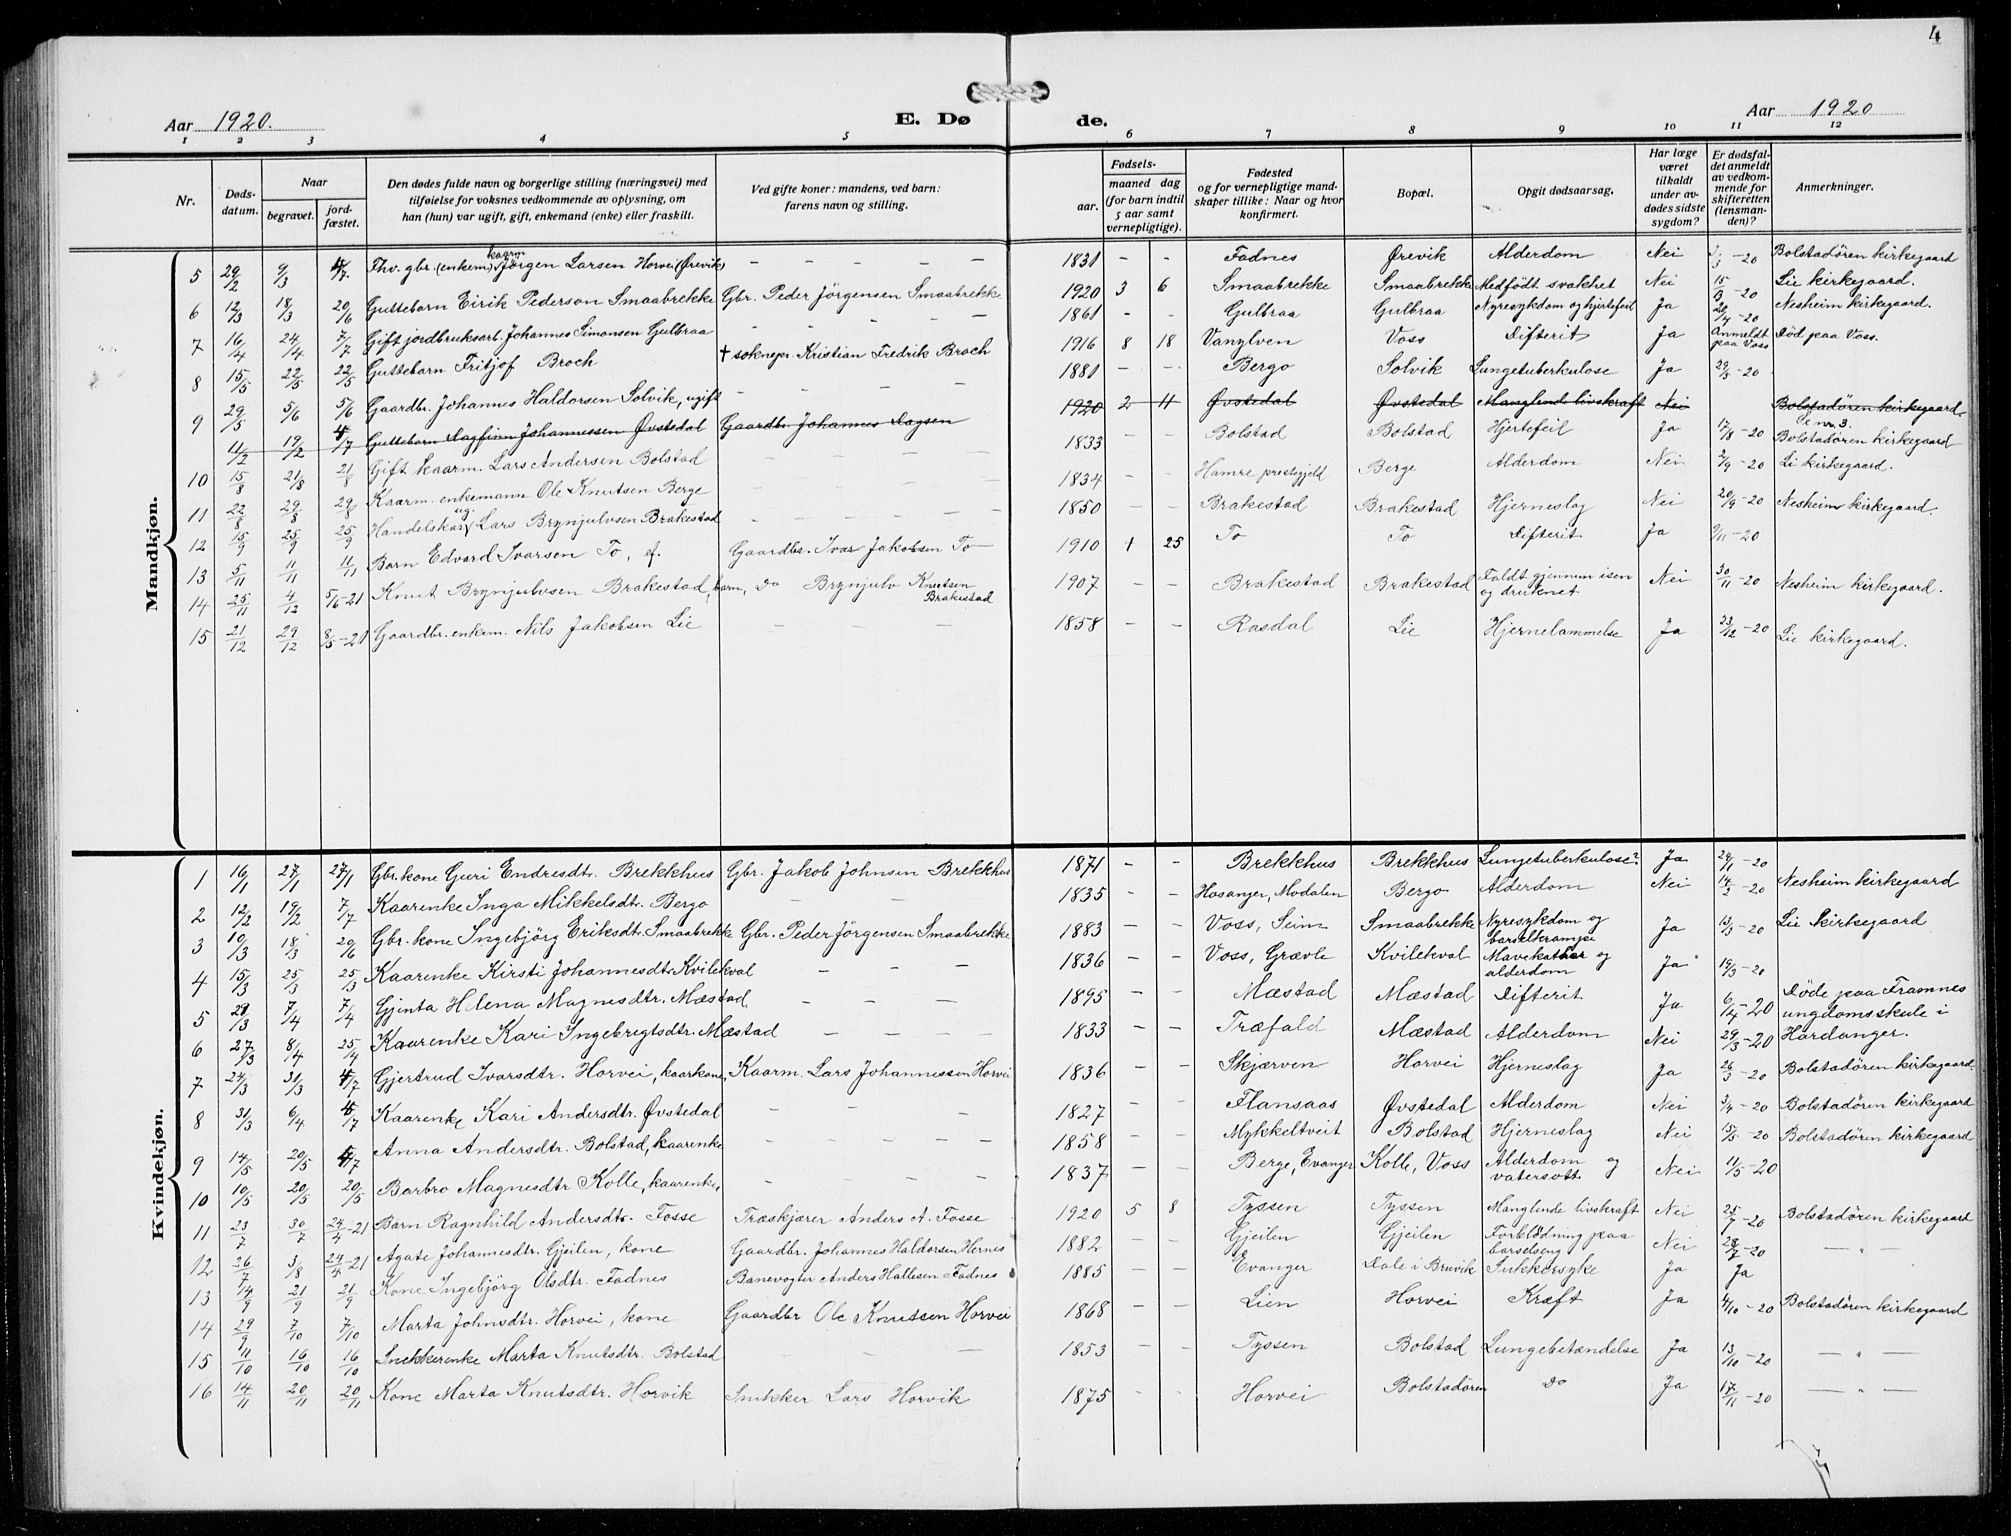 4
Aar 1920.
E. Dø
de.
Aar 1920
1 2 3 4 5 6 7 8 9 10 11 12
Nr.
Døds-
datum.
Naar
begravet.
jord-
fæstet.
Den dødes fulde navn og borgerlige stilling (næringsvei) med
tilføielse for voksnes vedkommende av oplysning, om
han (hun) var ugift, gift, enkemand (enke) eller fraskilt.
Ved gifte koner: mandens, ved barn:
farens navn og stilling.
Fødsels-
aar.
maaned dag
(for barn indtil
5 aar samt
vernepligtige).
Fødested
og for vernepligtige mand-
skaper tillike: Naar og hvor
konfirmert.
Bopæl.
Opgit dødsaarsag.
Har læge
været
tilkaldt
under av-
dødes sidste
sygdom?
Er dødsfal-
det anmeldt
av vedkom-
mende for
skifteretten
(lensman-
den)?
Anmerkninger.
Mandkjøn.
5 29/2 9/3 4/7 Fhv. gbr. (enkem.) kaarm Jörgen Larsen Horvei (Ørevik) – – – – – 1831 – – Fadnes Ørevik Alderdom Nei /3 – 20 Bolstadören kirkegaard
6 12/3 18/3 20/6 Guttebarn Eirik Pederson Smaabrekke Gbr. Peder Jörgensen Smaabrekke 1920 3 6 Smaabrekke Smaabrekke Medfödt svakhet Nei 15/3 – 20 Lie kirkegaard.
7 16/4 24/4 7/7 Gift jordbruksarb. Johannes Simonsen Gulbraa – – – – – 1861 – – Gulbraa Gulbraa Nyresykdom og hjertefeil Ja 20/4 – 20 Nesheim kirkegaard.
8 15/5 22/5 22/5 Guttebarn Fritjof Broch † soknepr. Kristian Fredrik Broch 1916 8 18 Vanylven Voss Difterit Ja Anmeldt paa Voss Död paa Voss.
9 29/5 5/6 5/6 Gaardbr. Johannes Haldorsen Solvik, ugift – – – – 1881 – – Bergo Solvik Lungetuberkulose Ja 29/5 – 20
11/2 19/2 4/7 Guttebarn Dagfinn Johannessen Øvstedal Gaardbr. Johannes Dagsen 1920 2 11 Øvstedal Øvstedal Manglend livskraft Nei Bolstadören kirkegaard. Se nr. 3.
10 15/8 21/8 21/8 Gift kaarm. Lars Andersen Bolstad – – – – 1833 – – Bolstad Bolstad Hjertefeil Ja 17/8 – 20 Bolstadören kirkegaard
11 22/8 29/8 29/8 Kaarm. enkemann Ole Knutsen Berge – – – – 1834 – Hamre prestegjeld Berge Alderdom Nei 2/9 – 20 Lie kirkegaard.
12 15/9 25/9 25/9 Handelskar ug. Lars Brynjulvsen Brakestad – – – – – 1850 – – Brakestad Brakestad Hjerneslag Nei 20/9 – 20 Nesheim kirkegaard.
13 5/11 11/11 11/11 Barn Edvard Ivarsen To, ef. Gaardbr. Ivar Jakobsen To – 1910 1 25 To To Difterit Ja 9/11 – 20
14 25/11 4/12 5/6 – 21 Knut Brynjulvsen Brakestad, barn, do Brynjulv Knutsen Brakestad 1907 – – Brakestad Brakestad Faldt gjennem isen og druknet Nei 30/11 – 20 Nesheim kirkegaard.
15 21/12 29/12 8/5 – 21 Gaardbr. enkem. Nils Jakobsen Lie – – – – 1858 – – Rasdal Lie Hjernelammelse Ja 23/12 – 20 Lie kirkegaard.
Kvindekjøn.
1 16/1 27/1 27/1 Gbr. kone Guri Endresdtr. Brekkhus Gbr. Jakob Johnsen Brekkhus 1871 – – Brekkhus Brekkhus Lungetuberkulose? Ja 24/1 – 20
2 12/2 19/2 7/7 Kaarenke Inga Mikkelsdt. Bergo – – – 1835 – – Hosanger, Modalen Bergo Alderdom Nei 14/2 – 20 Nesheim kirkegaard
3 10/3 18/3 20/6 Gbr. kone Ingebjörg Eriksdt. Smaabrekke Gbr. Peder Jörgensen Smaabrekke 1883 – – Voss, Seim Smaabrekke Nyresykdom og barselkrampe Ja 13/3 – 20 Lie kirkegaard
4 15/3 25/3 25/3 Kaarenke Kirsti Johannesdtr. Kvilekval – – – 1836 – – Voss, Grævle Kvilekval Mavekatar og alderdom Ja 19/3 – 20
5 29/3 7/4 7/4 Gjinta Helena Magnesdtr. Mæstad – – – 1895 – – Mæstad Mæstad Difterit Ja 6/4 – 20 Døde paa Framnes ungdomsskule i Hardanger.
6 27/3 8/4 25/4 Kaarenke Kari Ingebregtsdtr. Mæstad – – – – 1833 – – Træfald Mæstad Alderdom Nei 29/3 – 20
7 24/3 31/3 4/7 Gjertrud Ivarsdtr. Horvei, kaarkone, Kaarm. Lars Johannessen Horvei 1836 – – Skjærven Horvei Hjerneslag Ja 26/3 – 20 Bolstadören kirkegaard.
8 31/3 6/4 4/7 Kaarenke Kari Andersdtr. Øvstedal – – – 1827 – – Flansaas Øvstedal Alderdom Nei 3/4 – 20 Bolstadören kirkegaard
9 14/5 20/5 4/7 Anna Andersdtr. Bolstad, kaarenke – – – – – 1858 – – Mykkeltveit Bolstad Hjerneslag Nei 15/5 – 20 Bolstadören kirkegaard
10 10/5 20/5 20/5 Barbro Magnesdtr Kolle, kaarenke, – – – – 1837 – – Berge, Evanger Kolle, Voss Alderdom og vatersott Nei 11/5 – 20
11 23/7 30/7 24/4 – 21 Barn Ragnhild Andersdtr. Fosse Træskjærer Anders A. Fosse 1920 5 8 Tyssen Tyssen Manglende livskraft Nei 25/7 – 20 Bolstadören kirkegaard
12 26/7 3/8 24/4 – 21 Agate Johannesdtr. Gjeilen, kone Gaardbr. Johannes Haldorsen Hernes 1882 – – Gjeilen Gjeilen Forblödning paa barselseng Nei 28/7 – 20 – " –
13 14/9 21/9 21/9 Kone Ingebjörg Olsdtr. Fadnes Banevogter Anders Hallesen Fadnes 1885 – – Evanger Dale i Bruvik Sukkersyke Ja Ja
14 29/9 7/10 7/10 Marta Johnsdtr. Horvei, kone Gaardbr Ole Knutsen Horvei 1868 – – Lien Horvei Kræft Ja 4/10 – 20 Bolstadören kirkegaard
15 11/10 16/10 16/10 Snekkerenke Marta Knutsdtr. Bolstad – – – 1853 – – Tyssen Bolstad Lungebetændelse Ja 13/10 – 20 – " –
16 14/11 20/11 20/11 Kone Marta Knutsdtr. Horvik Snekker Lars Horvik 1875 – – Horvei Bolstadören do Ja 17/11 – 20 – " –